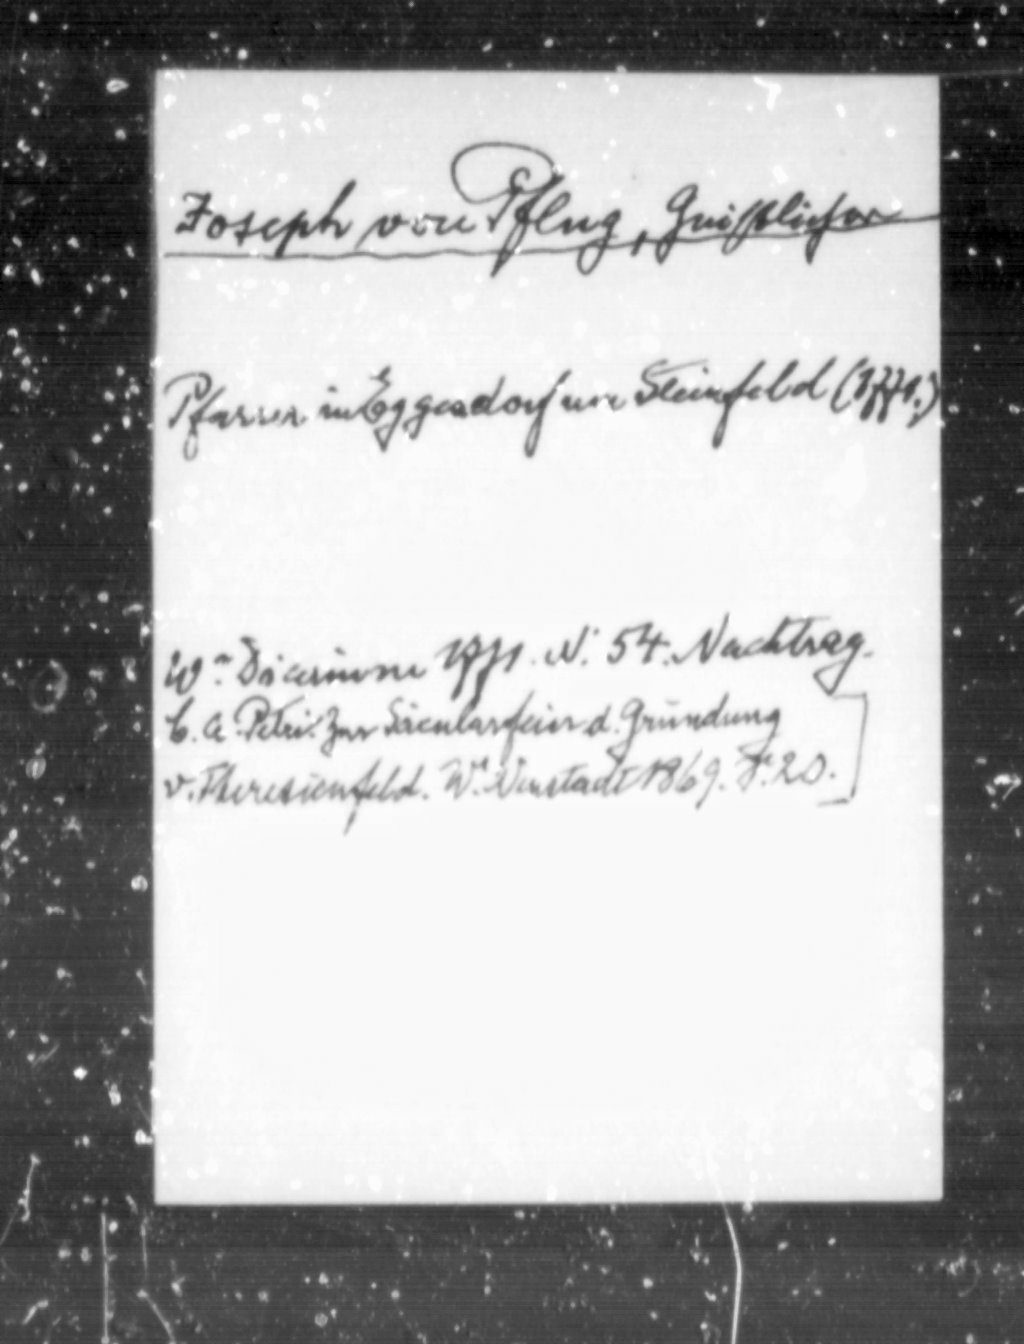 Joseph von Pflug, Geistlicher
Pfarrer in Eggendorf am Steinfeld (1771.)
Wr. Diarium 1771. N. 54. Nachtrag.
C. A. Petri: Zur Säcularfeier d. Gründung
v. Theresienfeld. W. Neustadt 1869. S. 20.